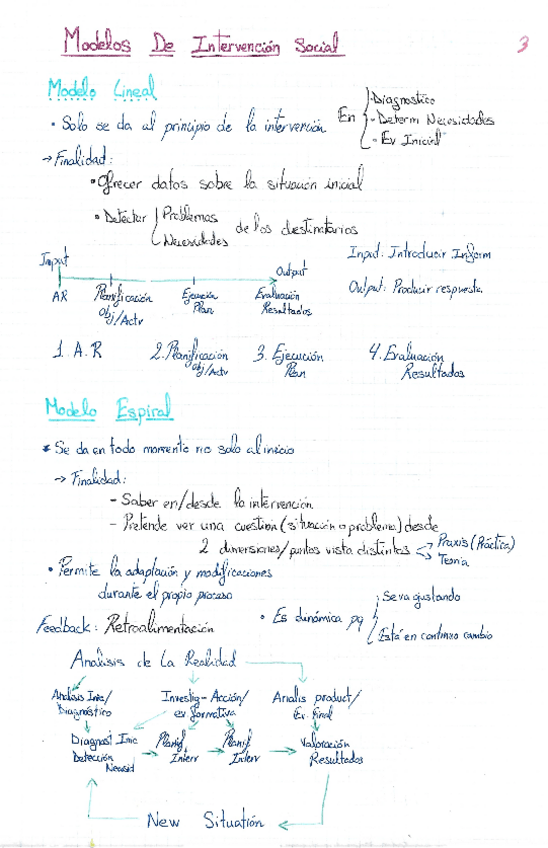 Modelos De Intervención Social
3
Modelo Lineal
• Solo se da al principio de la intervención En
- Diagnostico
- Determ Necesidades
- Ev Inicial
→ Finalidad:
• Ofrecer datos sobre la situación inicial
• Detectar Problemas
Necesidades
de los destinatarios
Input: Introducir Inform
Output: Producir respuesta
Input
Output
AR
Planificación
obj/Actv
Ejecución
Plan
Evaluación
Resultados
1. A.R
2. Planificación
obj/Actv
3. Ejecución
Plan
4. Evaluación
Resultados
Modelo Espiral
* Se da en todo momento no solo al inicio
→ Finalidad:
- Saber en/desde la intervención
- Pretende ver una cuestión (situación o problema) desde
2 dimensiones/puntos vista distintos
Praxis (Práctica)
Teoría
• Permite la adaptación y modificaciones
durante el propio proceso
• Es dinámica pq
Se va ajustando
Está en continuo cambio
Feedback: Retroalimentación
Analisis de La Realidad
Analisis Inic/
Diagnóstico
Investig-Acción/
ev formativa
Analis product/
Ev. final
Diagnost Inic
Detección
Necesid
Planif
Interv
Planif
Interv
Valoración
Resultados
New Situatión